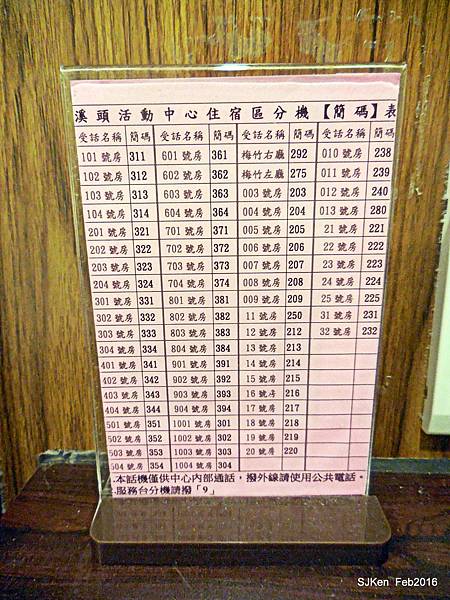 溪頭活動中心住宿區分機【簡碼】表
受話名稱 簡碼 受話名稱 簡碼 受話名稱 簡碼 受話名稱 簡碼
101 號房 311 601 號房 361 梅竹右廳 292 010 號房 238
102 號房 312 602 號房 362 梅竹左廳 275 011 號房 239
103 號房 313 603 號房 363 003 號房 203 012 號房 240
104 號房 314 604 號房 364 004 號房 204 013 號房 280
201 號房 321 701 號房 371 005 號房 205 21 號房 221
202 號房 322 702 號房 372 006 號房 206 22 號房 222
203 號房 323 703 號房 373 007 號房 207 23 號房 223
204 號房 324 704 號房 374 008 號房 208 24 號房 224
301 號房 331 801 號房 381 009 號房 209 25 號房 225
302 號房 332 802 號房 382 11 號房 250 31 號房 231
303 號房 333 803 號房 383 12 號房 212 32 號房 232
304 號房 334 804 號房 384 13 號房 213
401 號房 341 901 號房 391 14 號房 214
402 號房 342 902 號房 392 15 號房 215
403 號房 343 903 號房 393 16 號房 216
404 號房 344 904 號房 394 17 號房 217
501 號房 351 1001 號房 301 18 號房 218
502 號房 352 1002 號房 302 19 號房 219
503 號房 353 1003 號房 303 20 號房 220
504 號房 354 1004 號房 304
.本話機僅供中心內部通話，撥外線請使用公共電話。
.服務台分機請撥「9」
SJKen Feb2016